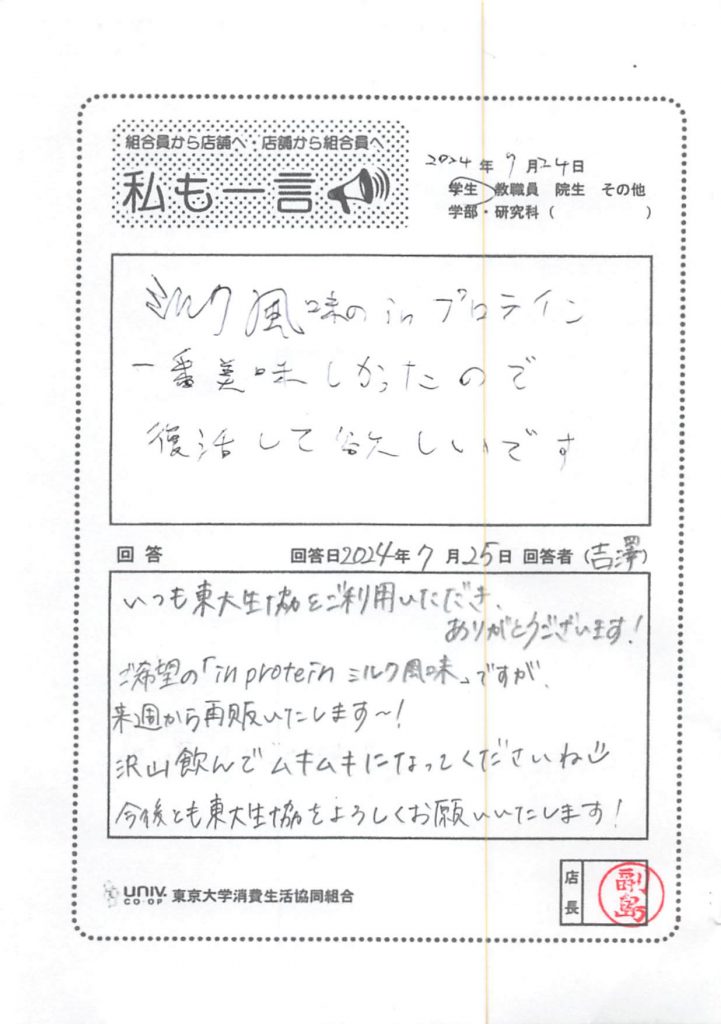 組合員から店舗へ・店舗から組合員へ
私も一言
2024年7月24日
学生 教職員 院生 その他
学部・研究科（ ）
ミルク風味のinプロテイン
一番美味しかったので
復活して欲しいです
回答 回答日2024年7月25日 回答者（吉澤）
いつも東大生協をご利用いただき、
ありがとうございます！
ご希望の「in protein ミルク風味」ですが、
来週から再販いたします〜！
沢山飲んでムキムキになってくださいね
今後とも東大生協をよろしくお願いいたします！
UNIV. CO-OP 東京大学消費生活協同組合
店長 副島